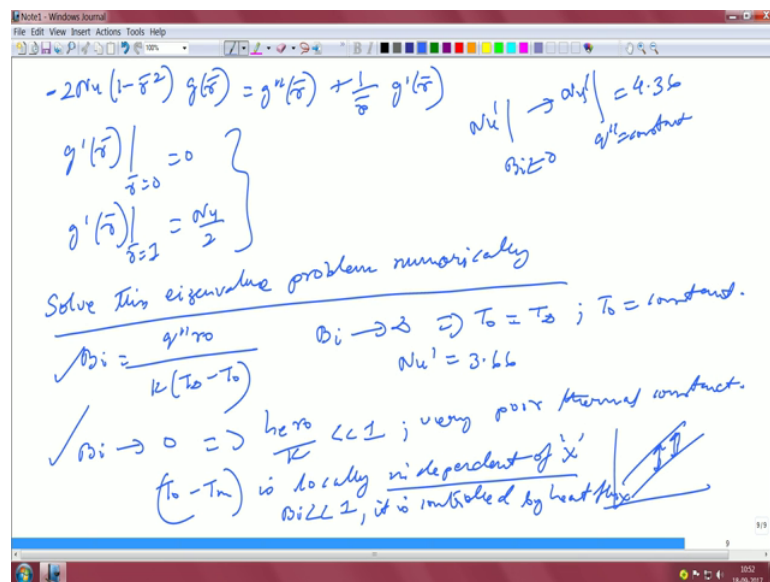 Note1 - Windows Journal
File Edit View Insert Actions Tools Help
100%
B I
-2Nu (1-r̄²) g(r̄) = g''(r̄) + 1/r̄ g'(r̄)
Nu'|Bi=0 → Nu'|q''=constant = 4.36
g'(r̄)|r̄=0 = 0
g'(r̄)|r̄=1 = Nu/2
Solve this eigenvalue problem numerically
Bi = q''r0 / k(T∞-T0)
Bi → ∞ => T0 = T∞ ; T0 = constant.
Nu' = 3.66
Bi → 0 => he r0/k <<1 ; very poor thermal constact.
(T0 - Tm) is locally independent of 'x'
Bi<<1, it is controlled by heat flux
9/9
9
10:52
18-09-2017